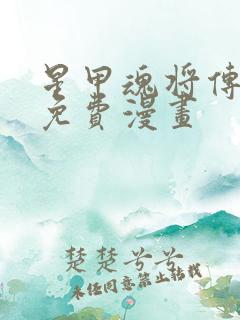 星甲魂将傳
免費漫畫
楚楚兮兮
未经同意禁止转载